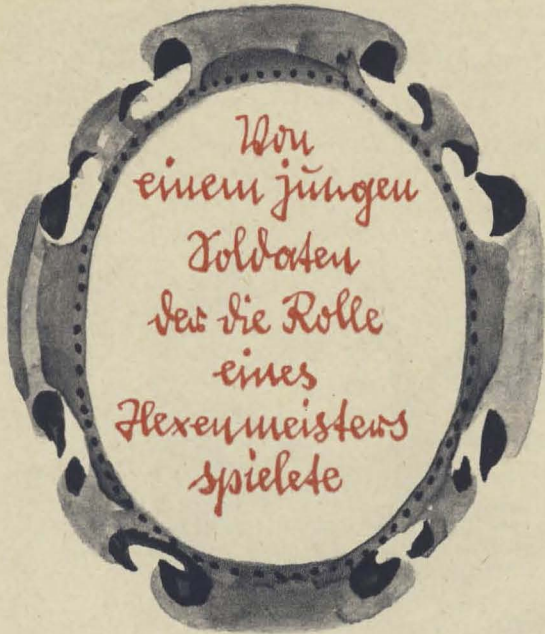 Von
einem jungen
Soldaten
der die Rolle
eines
Hexenmeisters
spielete